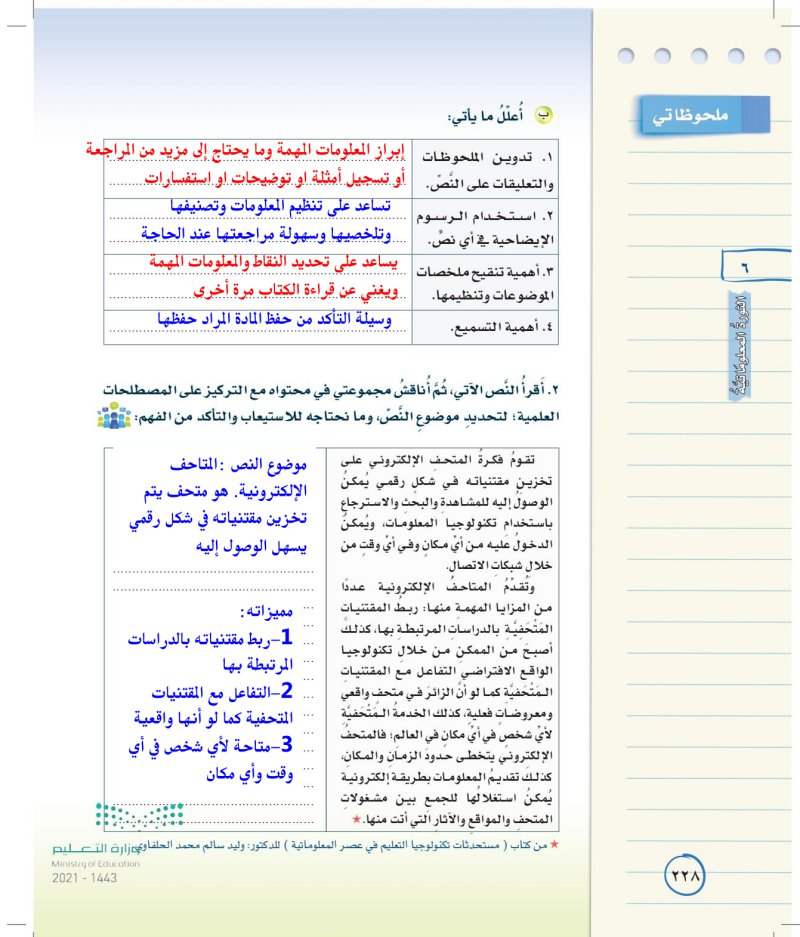 ملحوظاتي
ب أُعلّلُ ما يأتي:
١. تدوين الملحوظات
والتعليقات على النَّصّ.
إبراز المعلومات المهمة وما يحتاج إلى مزيد من المراجعة
أو تسجيل أمثلة او توضيحات او استفسارات
٢. استخدام الرسوم
الإيضاحية في أي نصٍّ.
تساعد على تنظيم المعلومات وتصنيفها
وتلخصيها وسهولة مراجعتها عند الحاجة
٣. أهمية تنقيح ملخصات
الموضوعات وتنظيمها.
يساعد على تحديد النقاط والمعلومات المهمة
ويغني عن قراءة الكتاب مرة أخرى
٤. أهمية التسميع.
وسيلة التأكد من حفظ المادة المراد حفظها
٦
الثورةُ المعلوماتيَّةُ
٢. أَقرأُ النَّص الآتي، ثمَّ أُناقشُ مجموعتي في محتواه مع التركيز على المصطلحات
العلمية؛ لتحديدِ موضوعِ النَّصّ، وما نحتاجه للاستيعاب والتأكد من الفهم:
تقومُ فكرةُ المتحفِ الإلكتروني على
تخزينِ مقتنياته في شكلٍ رقمي يُمكنُ
الوصولُ إليه للمشاهدةِ والبحث والاسترجاعِ
باستخدامِ تكنولوجيا المعلومات، ويُمكنُ
الدخولُ عليه من أيِّ مكانٍ وفي أيِّ وقتٍ من
خلالِ شبكاتِ الاتصالِ.
وتُقدِّمُ المتاحفُ الإلكترونية عددًا
من المزايا المهمة منها: ربطُ المقتنياتِ
المَتْحَفِيَّةِ بالدراساتِ المرتبطةِ بها، كذلكَ
أصبحَ من الممكنِ من خلالِ تكنولوجيا
الواقعِ الافتراضي التفاعل مع المقتنياتِ
المَتْحَفِيَّةِ كما لو أنَّ الزائرَ في متحفٍ واقعي
ومعروضاتٍ فعلية، كذلك الخدمةُ المَتْحَفيَّةِ
لأيِّ شخصٍ في أيِّ مكانٍ في العالمِ؛ فالمتحفُ
الإلكتروني يتخطى حدودَ الزمانِ والمكانِ،
كذلكَ تقديمُ المعلوماتِ بطريقةٍ إلكترونية
يُمكنُ استغلالُها للجمعِ بين مشغولاتِ
المتحفِ والمواقعِ والآثارِ التي أتت منها.★
موضوع النص :المتاحف
الإلكترونية. هو متحف يتم
تخزين مقتنياته في شكل رقمي
يسهل الوصول إليه
مميزاته:
1–ربط مقتنياته بالدراسات
المرتبطة بها
2–التفاعل مع المقتنيات
المتحفية كما لو أنها واقعية
3–متاحة لأي شخص في أي
وقت وأي مكان
★ من كتاب ( مستحدثات تكنولوجيا التعليم في عصر المعلوماتية ) للدكتور: وليد سالم محمد الحلفاوي
وزارة التعليم
Ministry of Education
2021 - 1443
٢٢٨